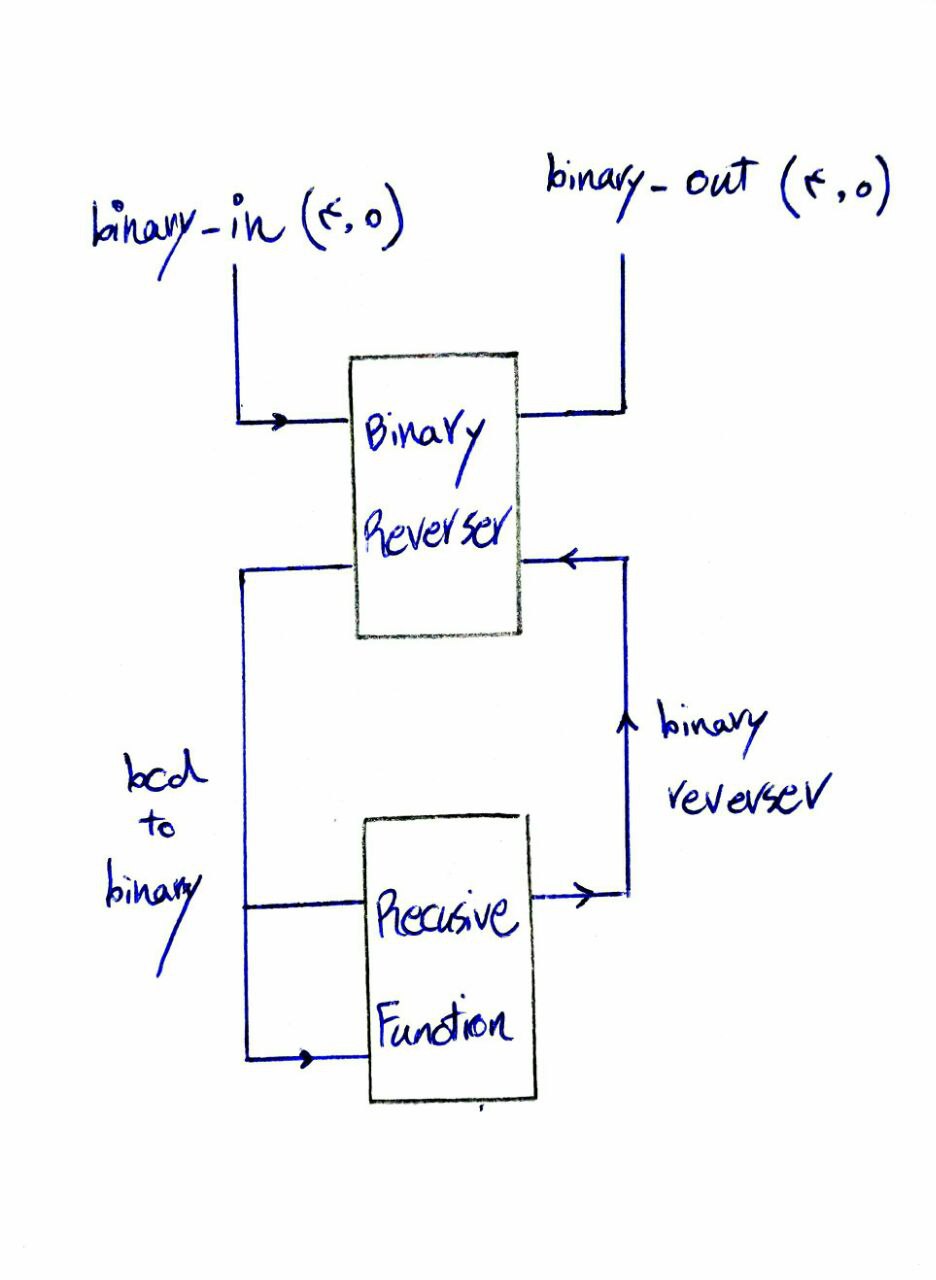 binary-in (۴,0)
binary-out (۴,0)
Binary
Reverser
bcd
to
binary
binary
reverser
Recusive
Function